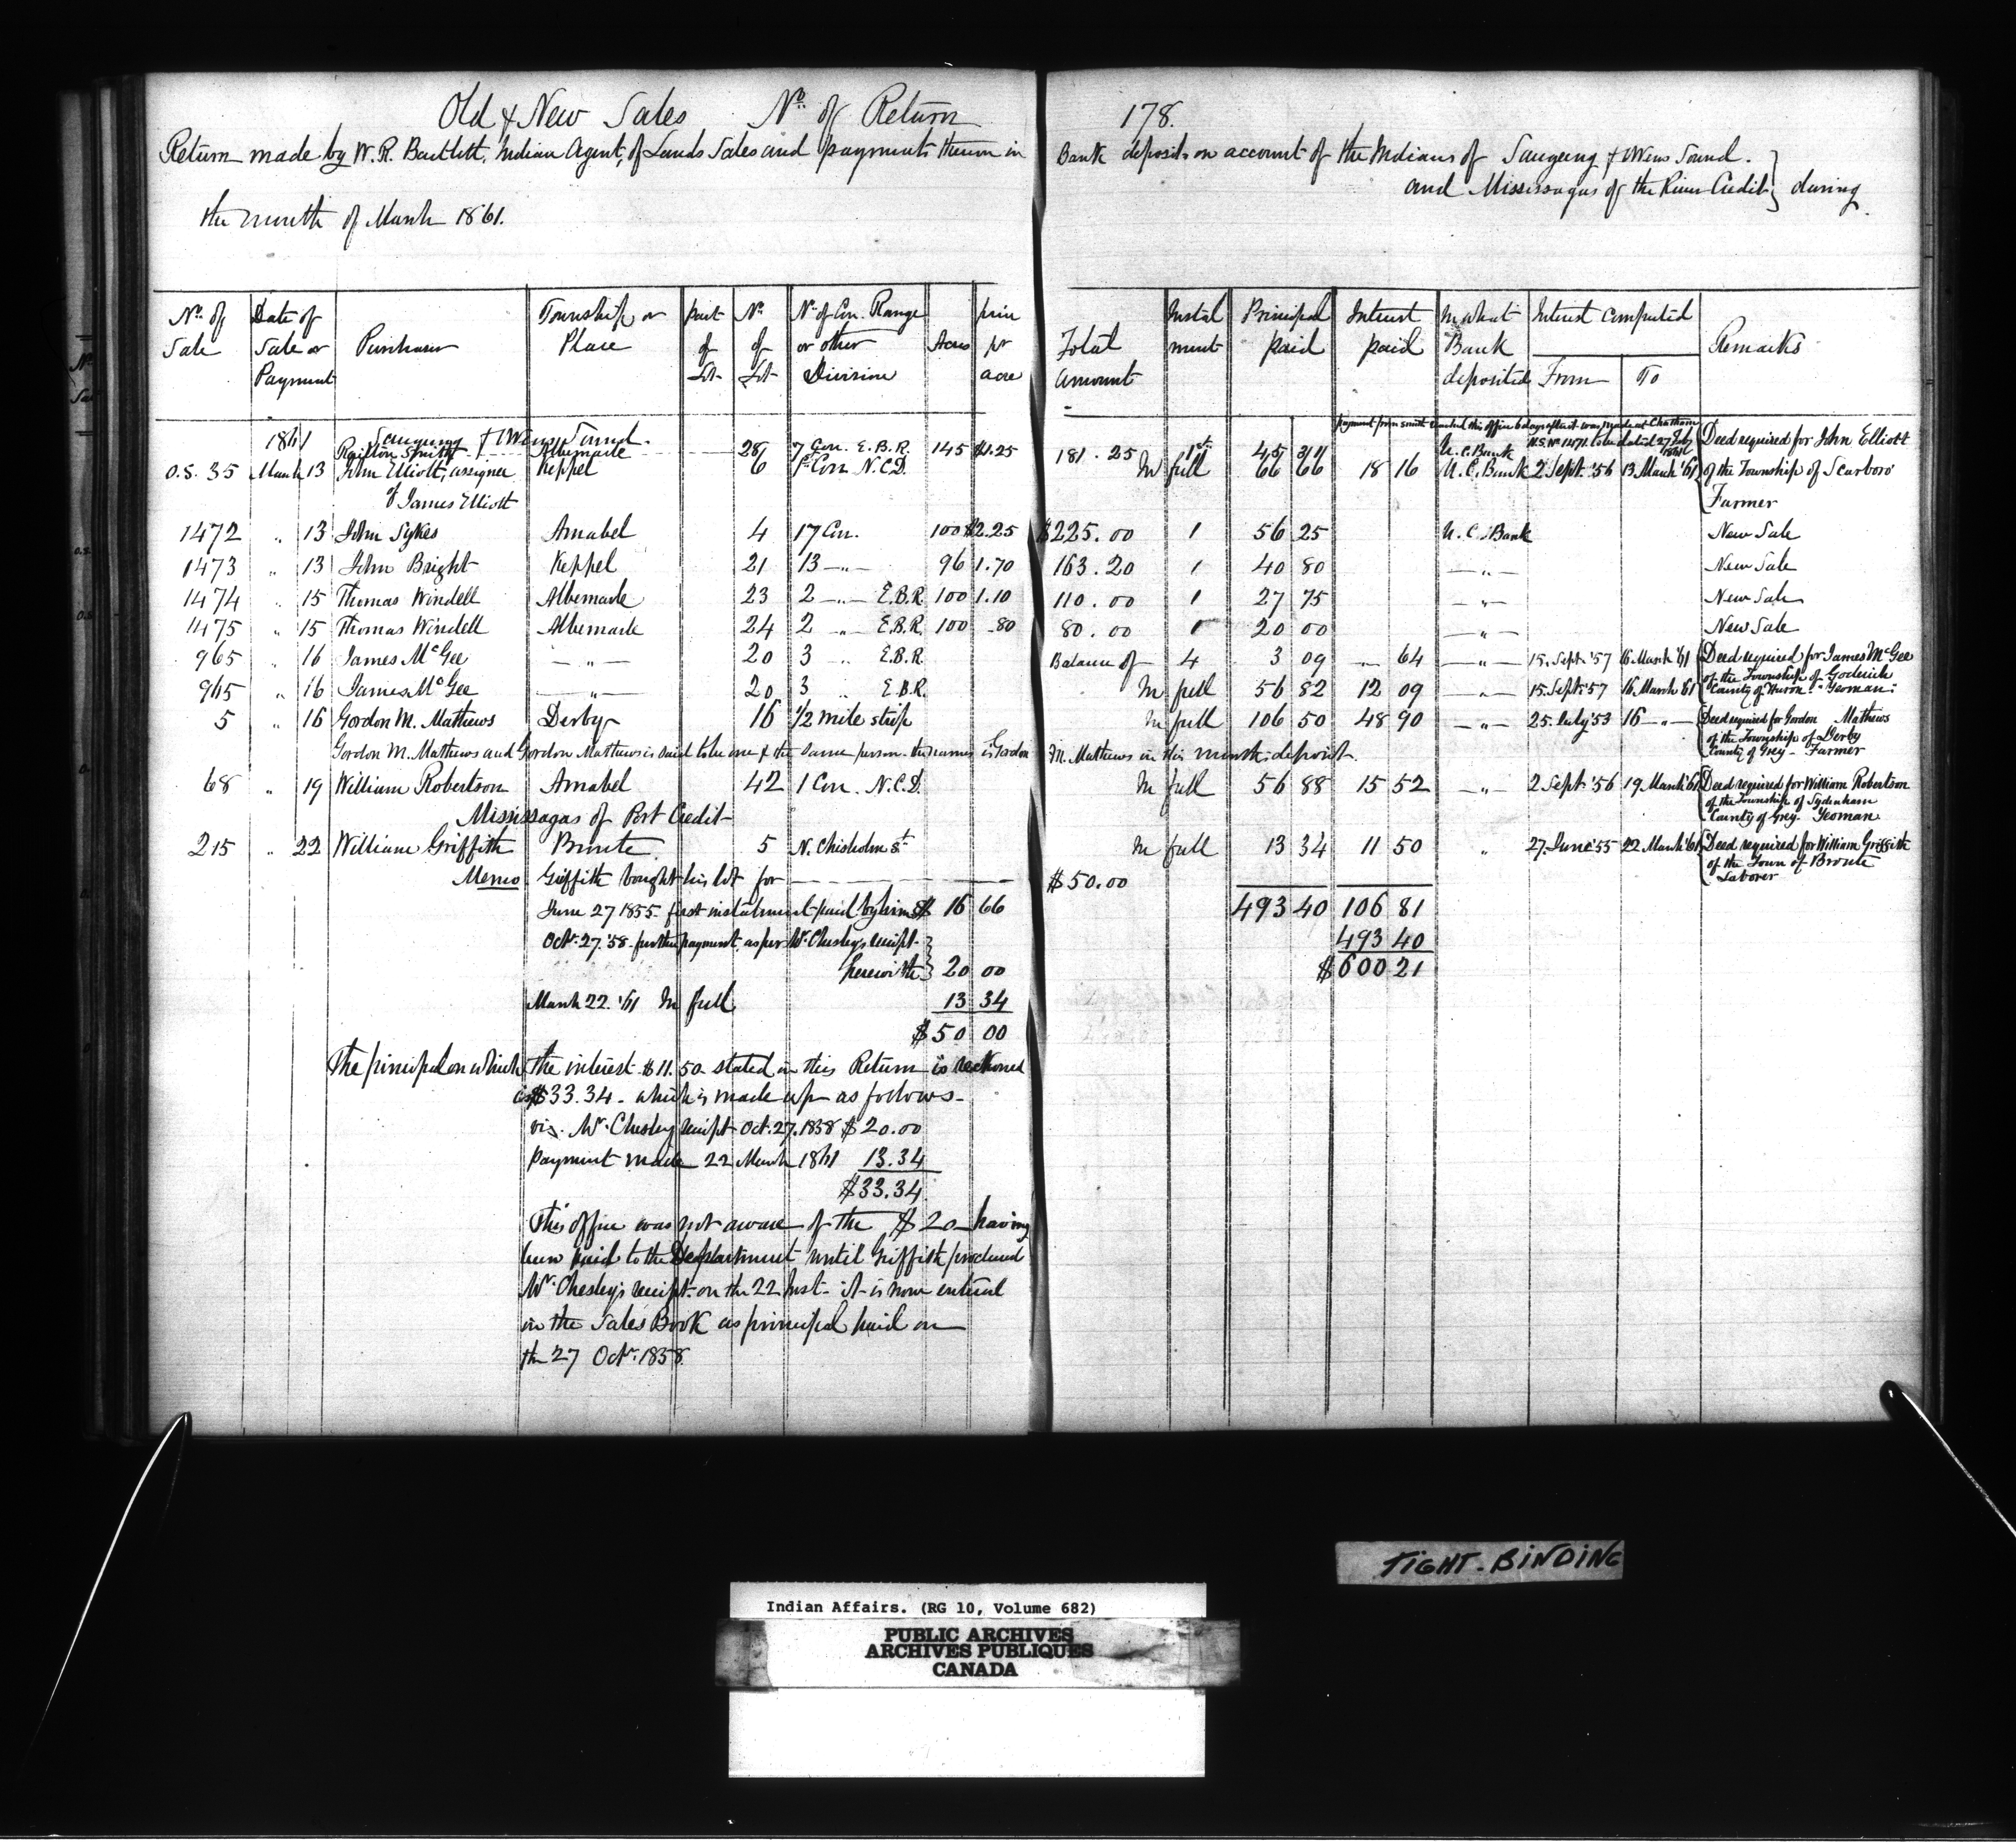 Old & New Sales No. of Return 178.
Return made by W. R. Bartlett, Indian Agent, of Lands Sales and payments therein in Bank deposits on account of the Indians of Saugeeng & Owens Sound.
and Mississagas of the River Credit } during
the month of March 1861.
No. of Sale | Date of Sale or Payment | Purchaser | Township or Place | part of Lot | No. of Lot | No. of Con. Range or other Division | Acres | price pr acre | Total Amount | Instalment | Principal paid | Interest paid | In what Bank deposited | Interest Computed From | To | Remarks
1861 Saugeeng & Owens Sound.
Railton Smith Albemarle 28 7 Con. E.B.R. 145 $1.25 181.25 1st 45 U.C. Bank N.S. No. 1471
O.S. 35 March 13 John Elliott, assignee Keppel 6 1st Con N.C.D. In full 66 66 18 16 U.C. Bank 2 Sept. '56 13 March '61 Deed required for John Elliott
of James Elliott of the Township of Scarboro
Farmer
1472 " 13 John Sykes Amabel 4 17 Con. 100 $2.25 $225.00 1 56 25 U.C. Bank New Sale
1473 " 13 John Bright Keppel 21 13 —"— 96 1.70 163.20 1 40 80 —"— New Sale
1474 " 15 Thomas Windell Albemarle 23 2 —"— E.B.R. 100 1.10 110.00 1 27 75 —"— New Sale
1475 " 15 Thomas Windell Albemarle 24 2 —"— E.B.R. 100 .80 80.00 1 20 00 —"— New Sale
965 " 16 James McGee —"— 20 3 " E.B.R. Balance of 4 3 09 64 —"— 15. Sept. '57 16 March '61 Deed required for James McGee
of the Township of Goderich
965 " 16 James McGee —"— 20 3 " E.B.R. In full 56 82 12 09 —"— 15. Sept. '57 16 March '61 County of Huron - Yeoman.
5 " 16 Gordon M. Mathews Derby 16 1/2 mile strip In full 106 50 48 90 —"— 25. July '53 16 —"— Deed required for Gordon Mathews
of the Township of Derby
County of Grey - Farmer
Gordon M. Mathews and Gordon Mathews is said to be one & the same person. the names is Gordon M. Mathews in this month's deposit.
68 " 19 William Robertson Amabel 42 1 Con. N.C.D. In full 56 88 15 52 —"— 2 Sept. '56 19 March '61 Deed required for William Robertson
of the Township of Sydenham
County of Grey. Yeoman
Mississagas of Port Credit
215 " 22 William Griffith Bronte 5 N. Chisholm St. In full 13 34 11 50 " 27. June '55 22 March '61 Deed required for William Griffith
of the Town of Bronte
Laborer
Memo Griffith bought his lot for $50.00
June 27 1855. first instalment paid by him $ 16 66 493 40 106 81
Octr. 27. '58 - further payment, as per Mr. Chesley's receipt 493 40
herewith } 20 00 $600 21
March 22. '61 In full 13 34
$50 00
The principal on which the interest $11.50 stated in this Return is reckoned
is $33.34 - which is made up as follows -
viz. Mr. Chesley receipt Oct. 27. 1858 $20.00
payment made 22 March 1861 13.34
$33.34
This office was not aware of the $20 - having
been paid to the Department until Griffith produced
Mr. Chesley's receipt on the 22 Inst. It is now entered
in the Sales Book as principal paid on
the 27 Octr. 1858.
TIGHT-BINDING
Indian Affairs. (RG 10, Volume 682)
PUBLIC ARCHIVES
ARCHIVES PUBLIQUES
CANADA